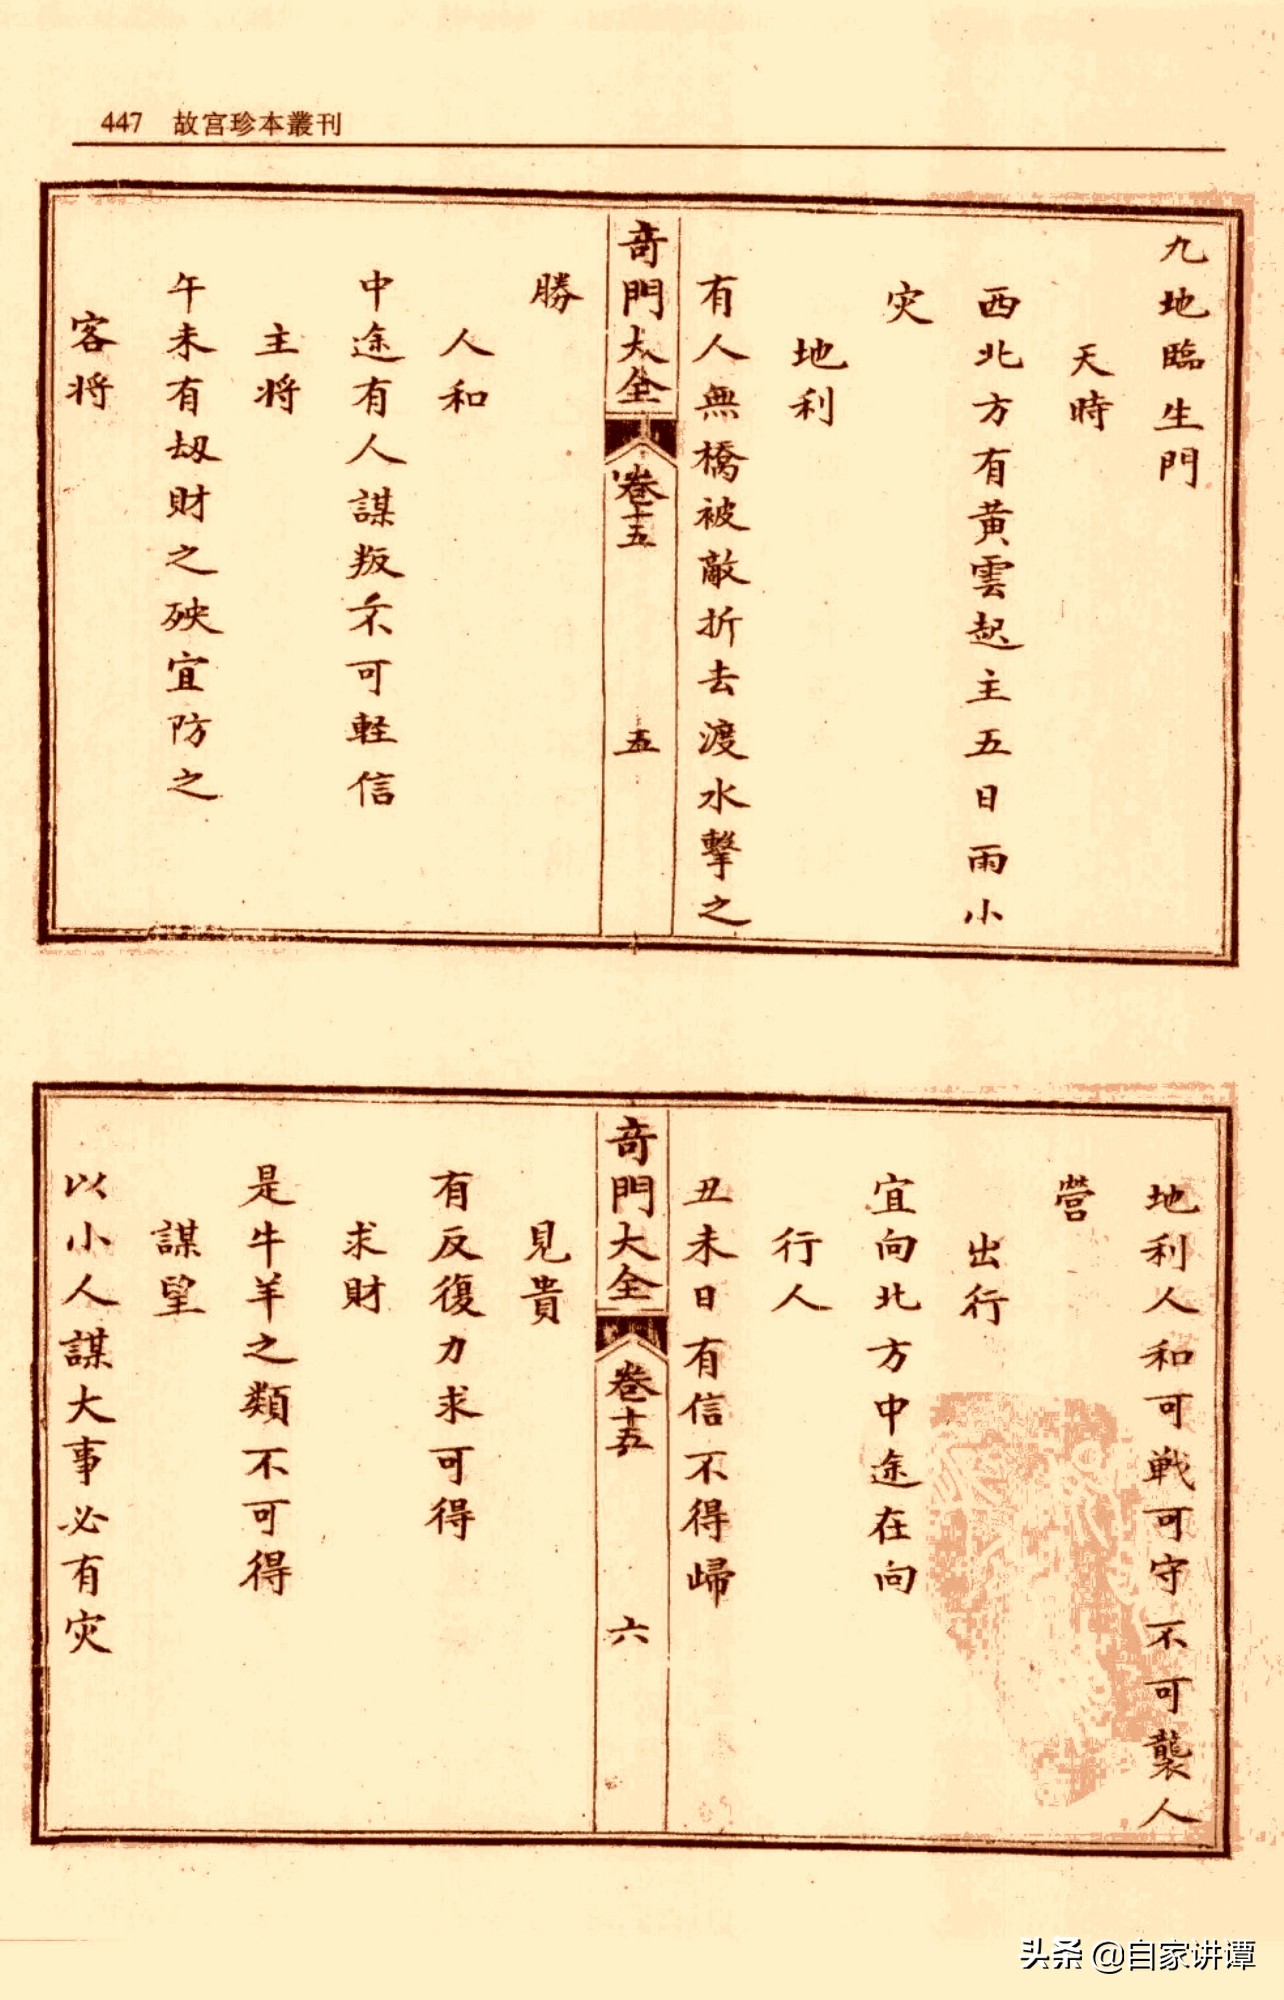 447 故宫珍本叢刊
九地臨生門
天時
西北方有黄雲起主五日雨小
灾
地利
有人無橋被敵折去渡水擊之
奇門大全 卷十五 五
勝
人和
中途有人謀叛不可軽信
主将
午未有刼財之殃宜防之
客将
地利人和可戰可守不可襲人
營
出行
宜向北方中途在向
行人
丑未日有信不得歸
奇門大全 卷十五 六
見貴
有反復力求可得
求財
是牛羊之類不可得
謀望
以小人謀大事必有灾
头条 @自家讲谭